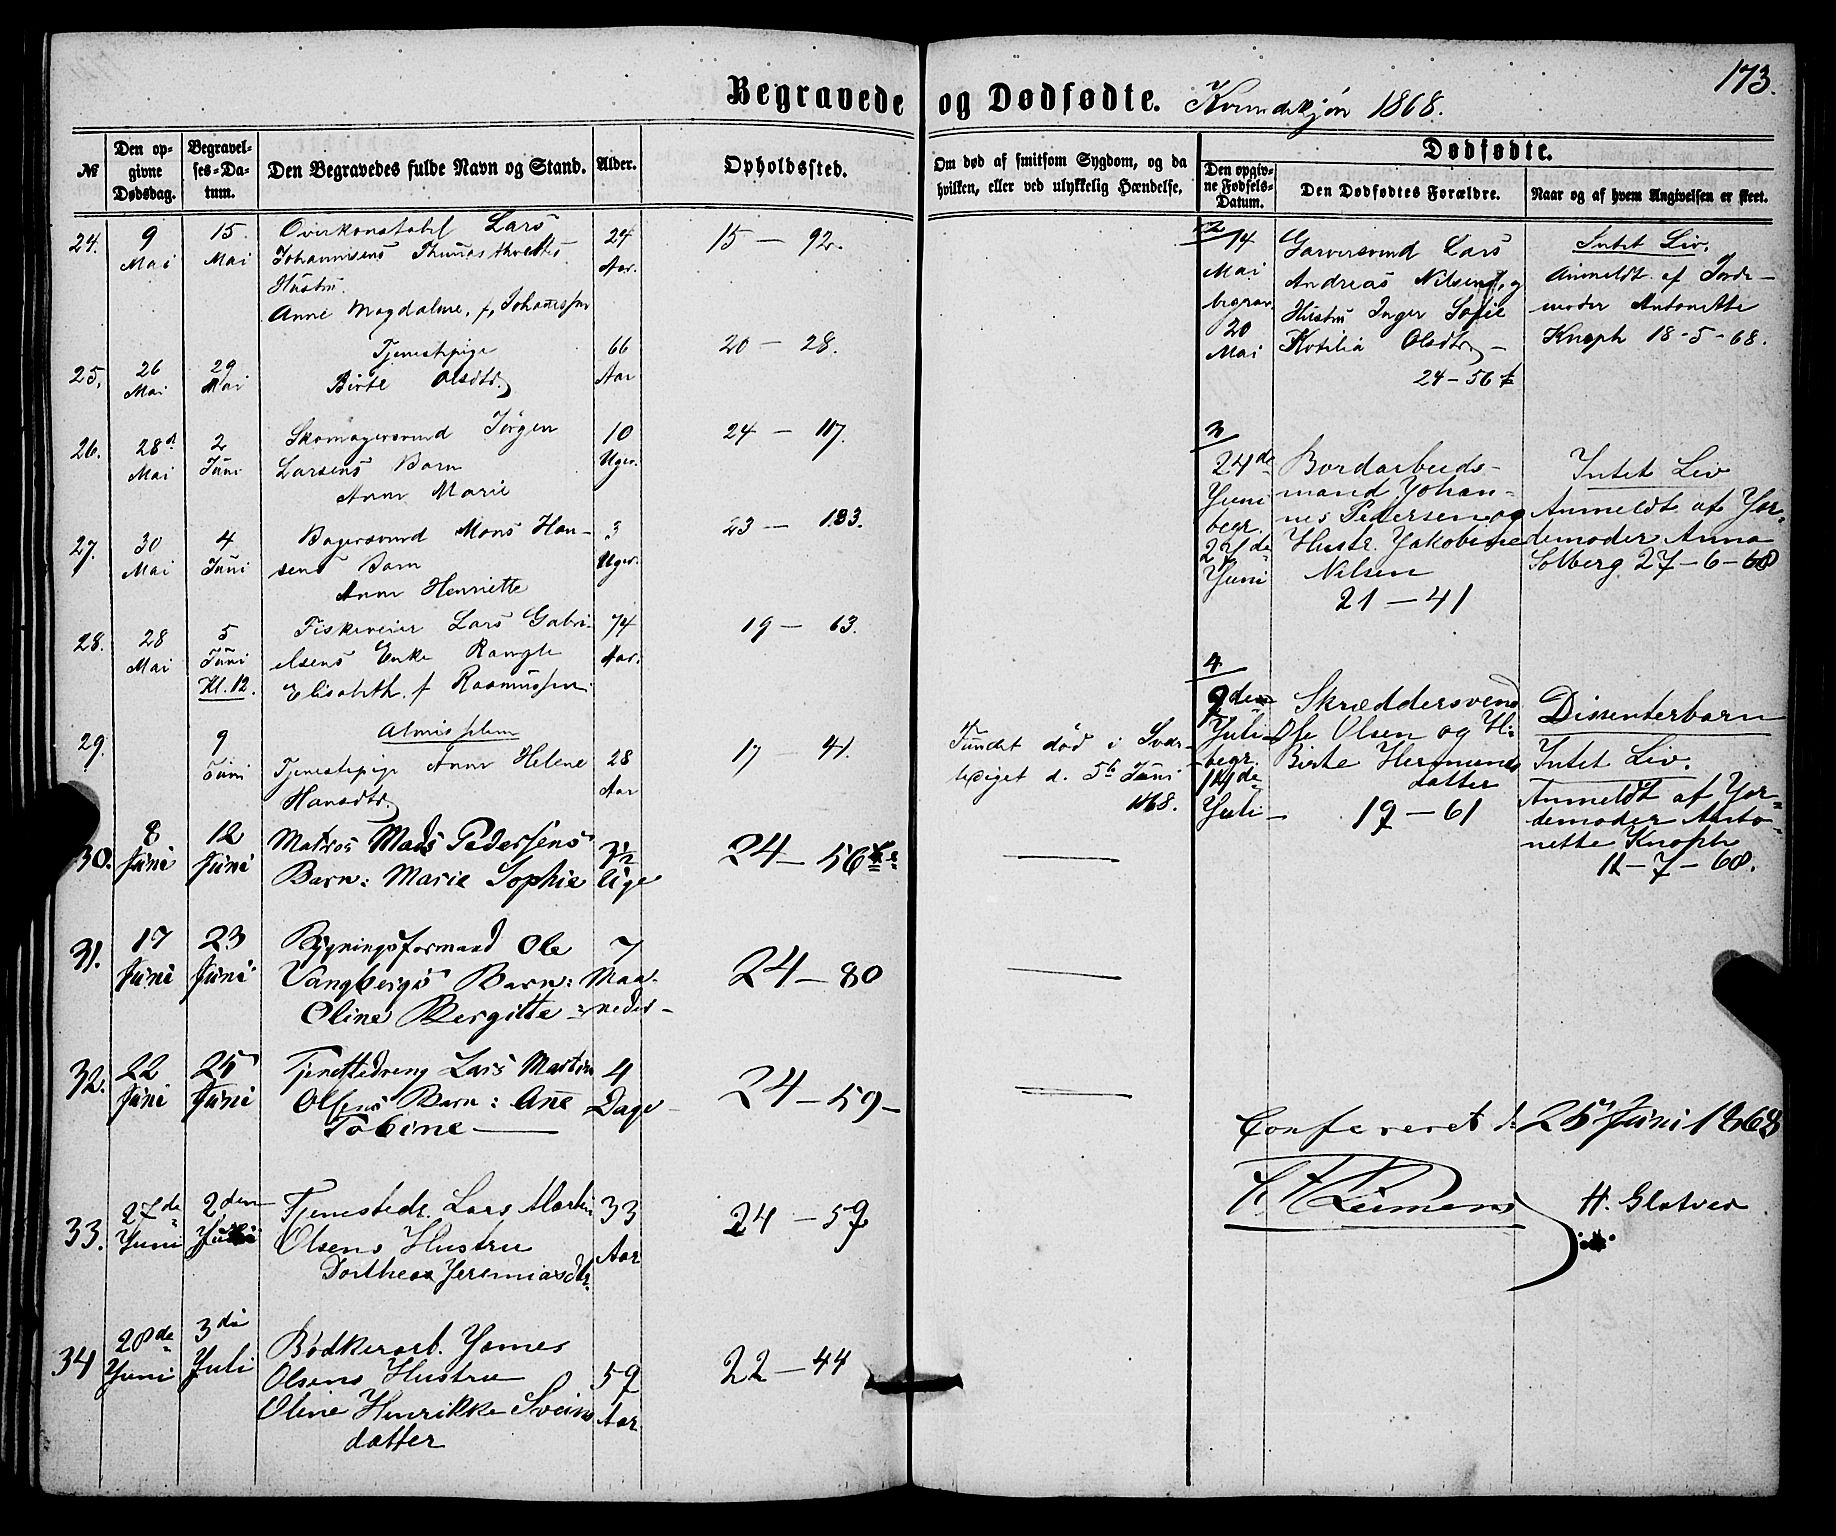 173.
Begravede og Dødfødte. Kvindekjøn 1868.
№
Den opgivne Dødsdag.
Begravelses-Datum.
Den Begravedes fulde Navn og Stand.
Alder.
Opholdssted.
Om død af smitsom Sygdom, og da hvilken, eller ved ulykkelig Hændelse.
Dødfødte.
Den opgivne Fødsels-Datum.
Den Dødfødtes Forældre.
Naar og af hvem Angivelsen er skeet.
24. 9 Mai 15. Mai
Overkonstabel Lars
Johannesens
Hustru
Anne Magdalene, f. Johannessen
24 Aar.
15 — 92.
25. 26 Mai 29 Mai
Tjenestepige
Birte Olsdtr.
66 Aar
20 — 28.
26. 28d Mai 2 Juni
Skomagersvend Jørgen
Larsens Barn
Anne Marie
10 Uger.
24 — 117.
27. 30 Mai 4 Juni
Bagersvend Mons Han-
sens Barn
Anne Henriette
3 Uger.
23 — 183.
28. 28 Mai 5 Juni Kl. 12.
Fiskeveier Lars Gabri-
elsens Enke
Elisabeth f. Rasmussen
74 Aar.
19 — 63.
29. 9 Juni
Almislem
Tjenestepige Anne Helene
Hansdtr.
28 Aar
17 — 41.
Fundet død i
d. 5te Juni
1868.
30. 8 Juni 12 Juni
Matros Mads Pedersens
Barn: Marie Sophie
3½ Uge
24 — 56
31. 17 Juni 23 Juni
Bygningsformand Ole
Vangbergs Barn:
Oline Bergitte
7 Maa-
neder
24 — 80
32. 22 Juni 25 Juni
Tjenestedreng Lars Martin
Olsens Barn: Ane
Tobine
4 Dage
24 — 59 —
33. 27de Juni 2den Juli
Tjenestedr. Lars Martin
Olsens Hustru
Dorthea Jeremiasdtr.
33 Aar
24 — 59
34 28de Juni 3die Juli
Bødkerarb. James
Olsens Hustru
Oline Henrikke Sveins
datter
59 Aar.
22 — 44
14 Mai begrav. 20 Mai
Garversvend Lars
Andreas Nilsen, og
Hustru Inger Sofie
Olsdtr —
24 — 56
Intet Liv.
Anmeldt af Jorde-
moder Antonette
Knoph 18-5-68.
3
24de Juni begr. 27de Juni
Bordarbeids-
mand Johan-
nes Pedersen og
Hustr. Jakobine
Nilsen
21 — 41
Intet Liv
Anmeldt af Jor-
demoder Anna
Solberg 27-6-68
4.
9den Juli begr. 14de Juli
Skræddersvend
Ole Olsen og H.
Birte Hermunds
datter
19 — 61
Dissenterbarn
Intet Liv.
Anmeldt af Jor-
demoder Anto-
nette Knoph
11-7-68.
Confereret d. 25 Juni 1868
H. Glatved